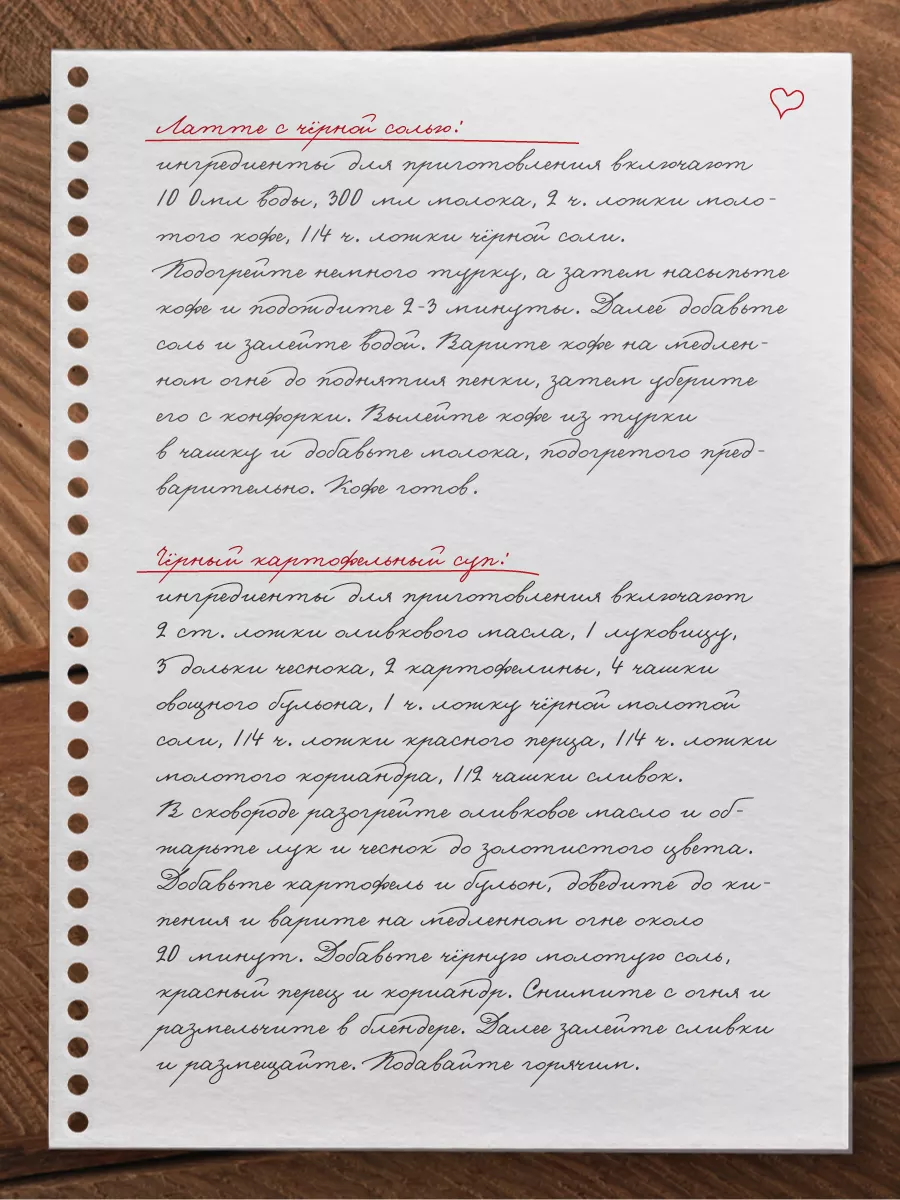 Латте с чёрной солью:
ингредиенты для приготовления включают
10 0мл воды, 300 мл молока, 2 ч. ложки моло-
того кофе, 114 ч. ложки чёрной соли.
Подогрейте немного турку, а затем насыпьте
кофе и подождите 2-3 минуты. Далее добавьте
соль и залейте водой. Варите кофе на медлен-
ном огне до поднятия пенки, затем уберите
его с конфорки. Вылейте кофе из турки
в чашку и добавьте молока, подогретого пред-
варительно. Кофе готов.
Чёрный картофельный суп:
ингредиенты для приготовления включают
2 ст. ложки оливкового масла, 1 луковицу,
3 дольки чеснока, 2 картофелины, 4 чашки
овощного бульона, 1 ч. ложку чёрной молотой
соли, 114 ч. ложки красного перца, 114 ч. ложки
молотого кориандра, 112 чашки сливок.
В сковороде разогрейте оливковое масло и об-
жарьте лук и чеснок до золотистого цвета.
Добавьте картофель и бульон, доведите до ки-
пения и варите на медленном огне около
20 минут. Добавьте чёрную молотую соль,
красный перец и кориандр. Снимите с огня и
размельчите в блендере. Далее залейте сливки
и размещайте. Подавайте горячим.